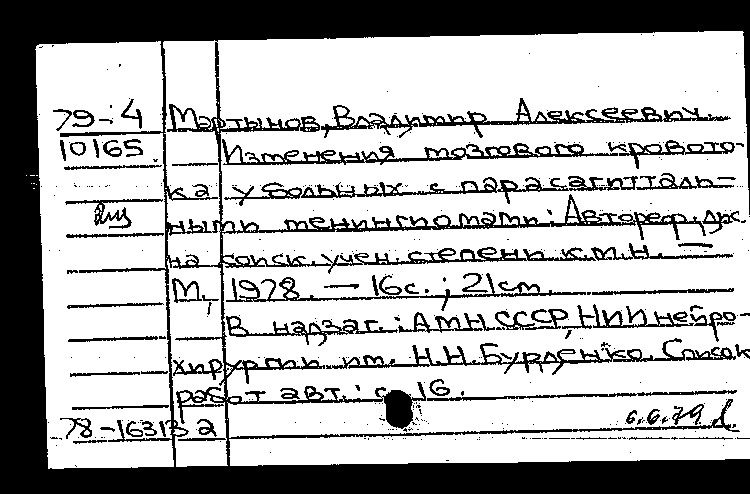 79-4 Мартынов, Владимир Алексеевич.
10165 Изменения мозгового кровото-
ка у больных с парасагитталь-
ными менингиомами: Автореф. дис.
на соиск. учен. степени к.м.н. —
М., 1978. — 16с.; 21см.
В надзаг.: АМН СССР, НИИ нейро-
хирургии им. Н.Н.Бурденко. Список
работ авт.: с. 16.
78-16313 а 6.6.79